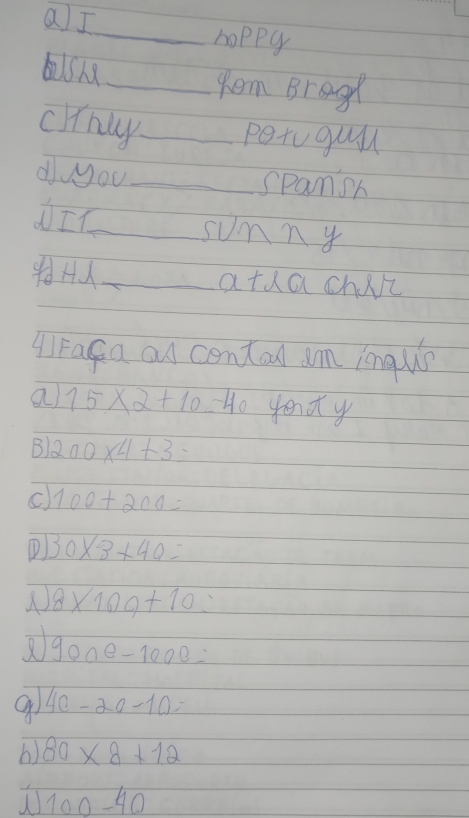 a) I ________ happy
b) She ________ from Brazil
c) They ________ Potuguese
d) You ________ SPanish
e) IT ________ sunny
f) He ________ a teacher
4) Faça as contas em inglês
a) 15 X 2 + 10 = 40 forty
B) 200 x 4 + 3 =
c) 100 + 200 =
D) 30 X 3 + 40 =
e) 8 X 100 + 10 =
9000 - 1000 =
g) 40 - 20 - 10 =
h) 80 x 8 + 12
i) 100 - 40